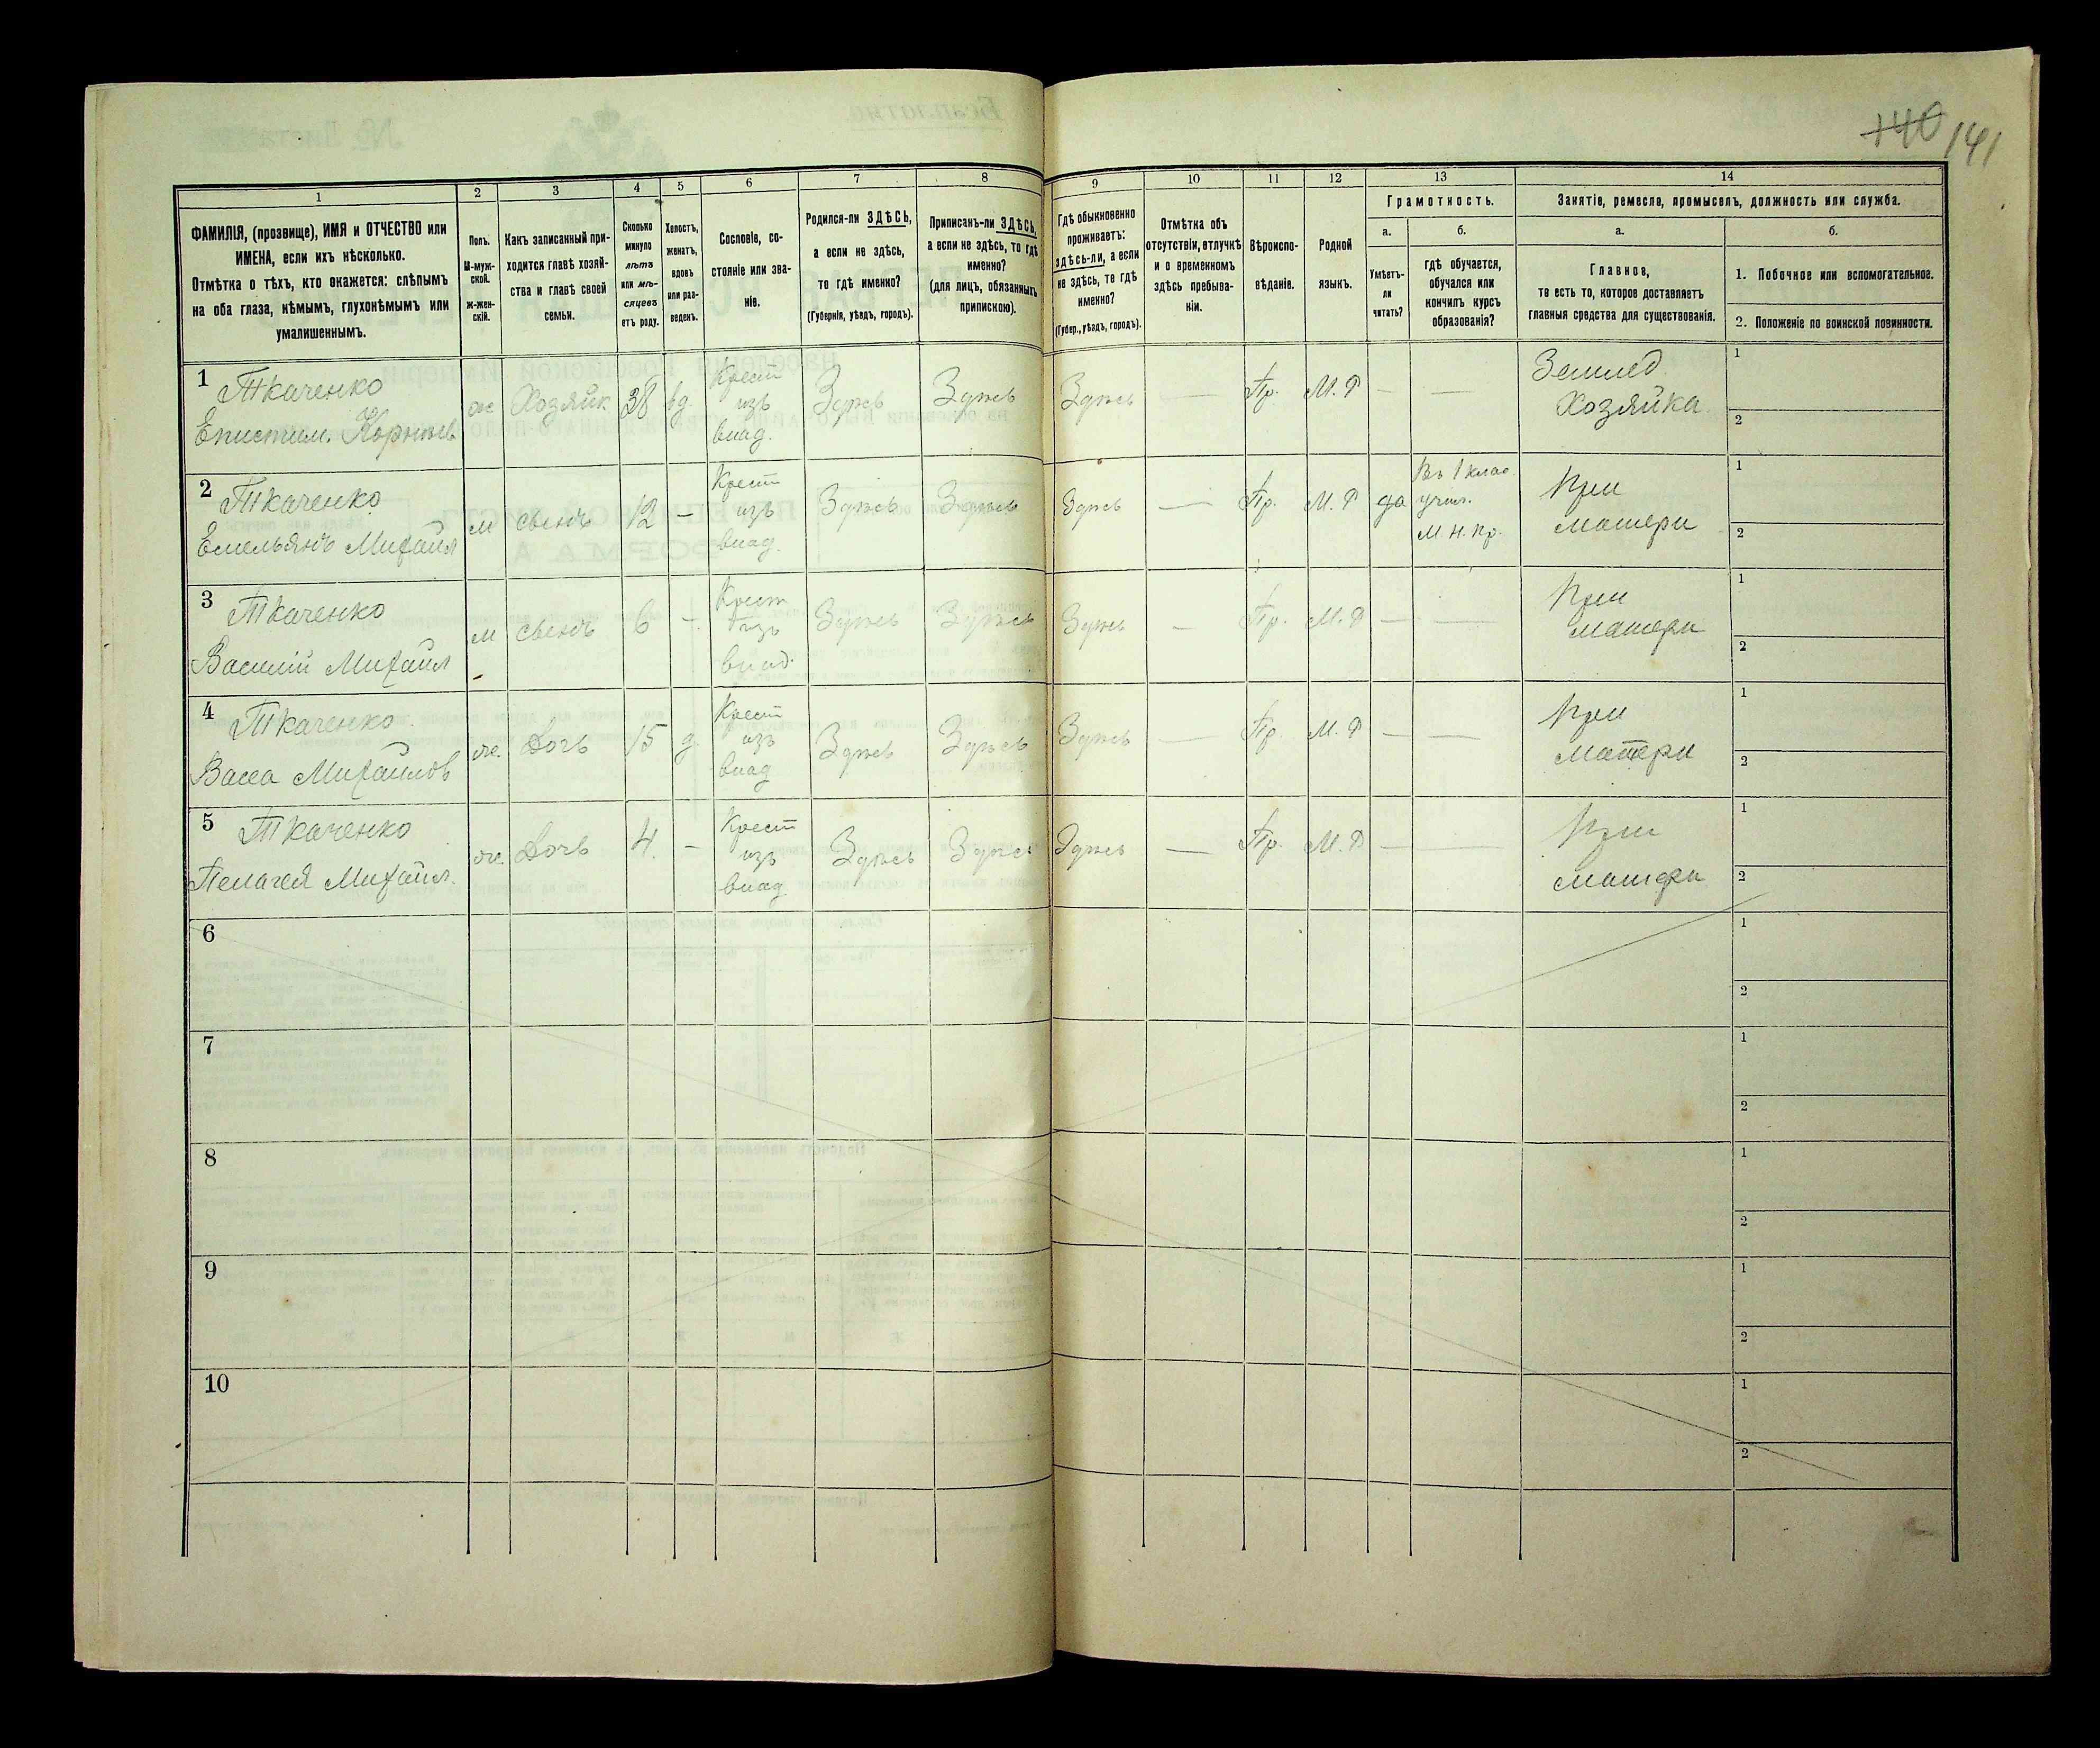 140 141
1
2
3
4
5
6
7
8
9
10
11
12
13
14
ФАМИЛІЯ, (прозвище), ИМЯ и ОТЧЕСТВО или
ИМЕНА, если ихъ нѣсколько.
Отмѣтка о тѣхъ, кто окажется: слѣпымъ
на оба глаза, нѣмымъ, глухонѣмымъ или
умалишеннымъ.
Полъ.
М-муж-
ской.
ж-жен-
скій.
Какъ записанный при-
ходится главѣ хозяй-
ства и главѣ своей
семьи.
Сколько
минуло
лѣтъ
или мѣ-
сяцевъ
отъ роду.
Холостъ,
женатъ,
вдовъ
или раз-
веденъ.
Сословіе, со-
стояніе или зва-
ніе.
Родился-ли ЗДѢСЬ,
а если не здѣсь,
то гдѣ именно?
(Губернія, уѣздъ, городъ).
Приписанъ-ли ЗДѢСЬ,
а если не здѣсь, то гдѣ
именно?
(для лицъ, обязанныхъ
припискою).
Гдѣ обыкновенно
проживаетъ:
здѣсь-ли, а если
не здѣсь, то гдѣ
именно?
(Губер., уѣздъ, городъ).
Отмѣтка объ
отсутствіи, отлучкѣ
и о временномъ
здѣсь пребыва-
ніи.
Вѣроиспо-
вѣданіе.
Родной
языкъ.
Грамотность.
а.
Умѣетъ-
ли
читать?
б.
гдѣ обучается,
обучался или
кончилъ курсъ
образованія?
Занятіе, ремесло, промыселъ, должность или служба.
а.
Главное,
то есть то, которое доставляетъ
главныя средства для существованія.
б.
1. Побочное или вспомогательное.
2. Положеніе по воинской повинности.
1 Ткаченко
Епистим. Корнѣев
ж. Хозяйк. 38 вд.
Крест
изъ
влад.
Здѣсь Здѣсь Здѣсь — Пр. М. Р — —
Землед
Хозяйка
1
2
2 Ткаченко
Емельянъ Михайл
м сынъ 12 —
Крест
изъ
влад.
Здѣсь Здѣсь Здѣсь — Пр. М. Р да
Въ 1 клас.
учил.
М. Н. Пр.
При
матери
1
2
3 Ткаченко
Василій Михайл
м сынъ 6 —
Крест
изъ
влад.
Здѣсь Здѣсь Здѣсь — Пр. М. Р — —
При
матери
1
2
4 Ткаченко
Васса Михайлов
ж. Дочь 15 д.
Крест
изъ
влад
Здѣсь Здѣсь Здѣсь — Пр. М. Р — —
При
матери
1
2
5 Ткаченко
Пелагея Михайл.
ж. Дочь 4. —
Крест
изъ
влад.
Здѣсь Здѣсь Здѣсь — Пр. М. Р — —
При
матери
1
2
6
1
2
7
1
2
8
1
2
9
1
2
10
1
2